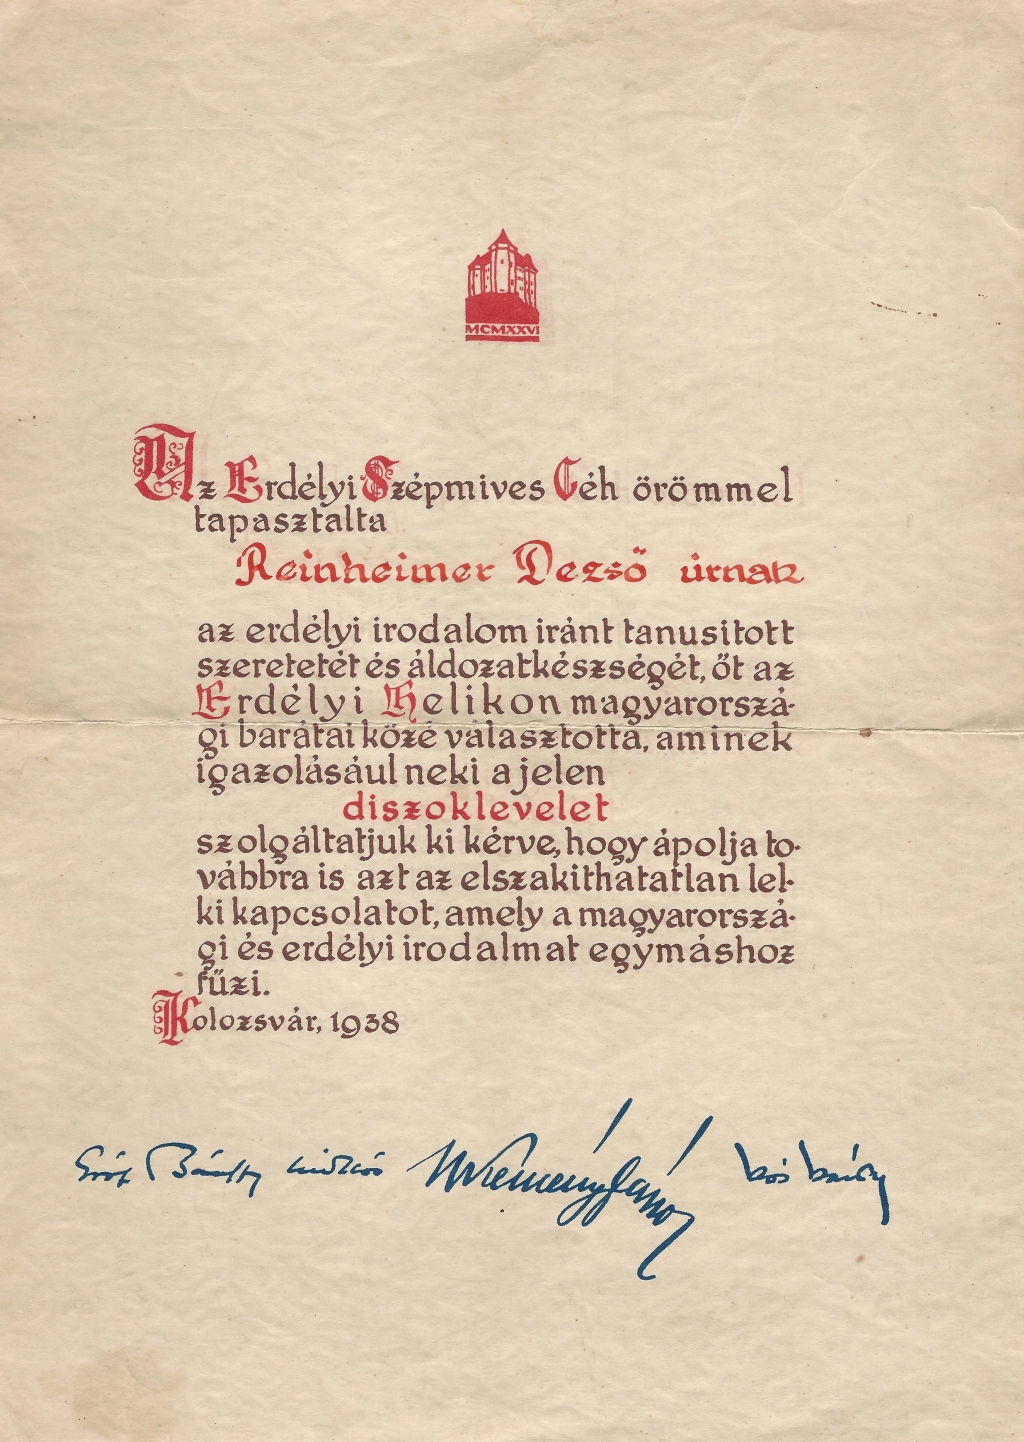 MCMXXVI
Az Erdélyi Szépmives Céh örömmel
tapasztalta
Reinheimer Dezső úrnak
az erdélyi irodalom iránt tanusitott
szeretetét és áldozatkészségét, őt az
Erdélyi Helikon magyarorszá-
gi barátai közé választotta, aminek
igazolásául neki a jelen
diszoklevelet
szolgáltatjuk ki kérve, hogy ápolja to-
vábbra is azt az elszakithatatlan lel-
ki kapcsolatot, amely a magyarorszá-
gi és erdélyi irodalmat egymáshoz
fűzi.
Kolozsvár, 1938
Gróf Bánffy Miklós Kemény János Kós Károly